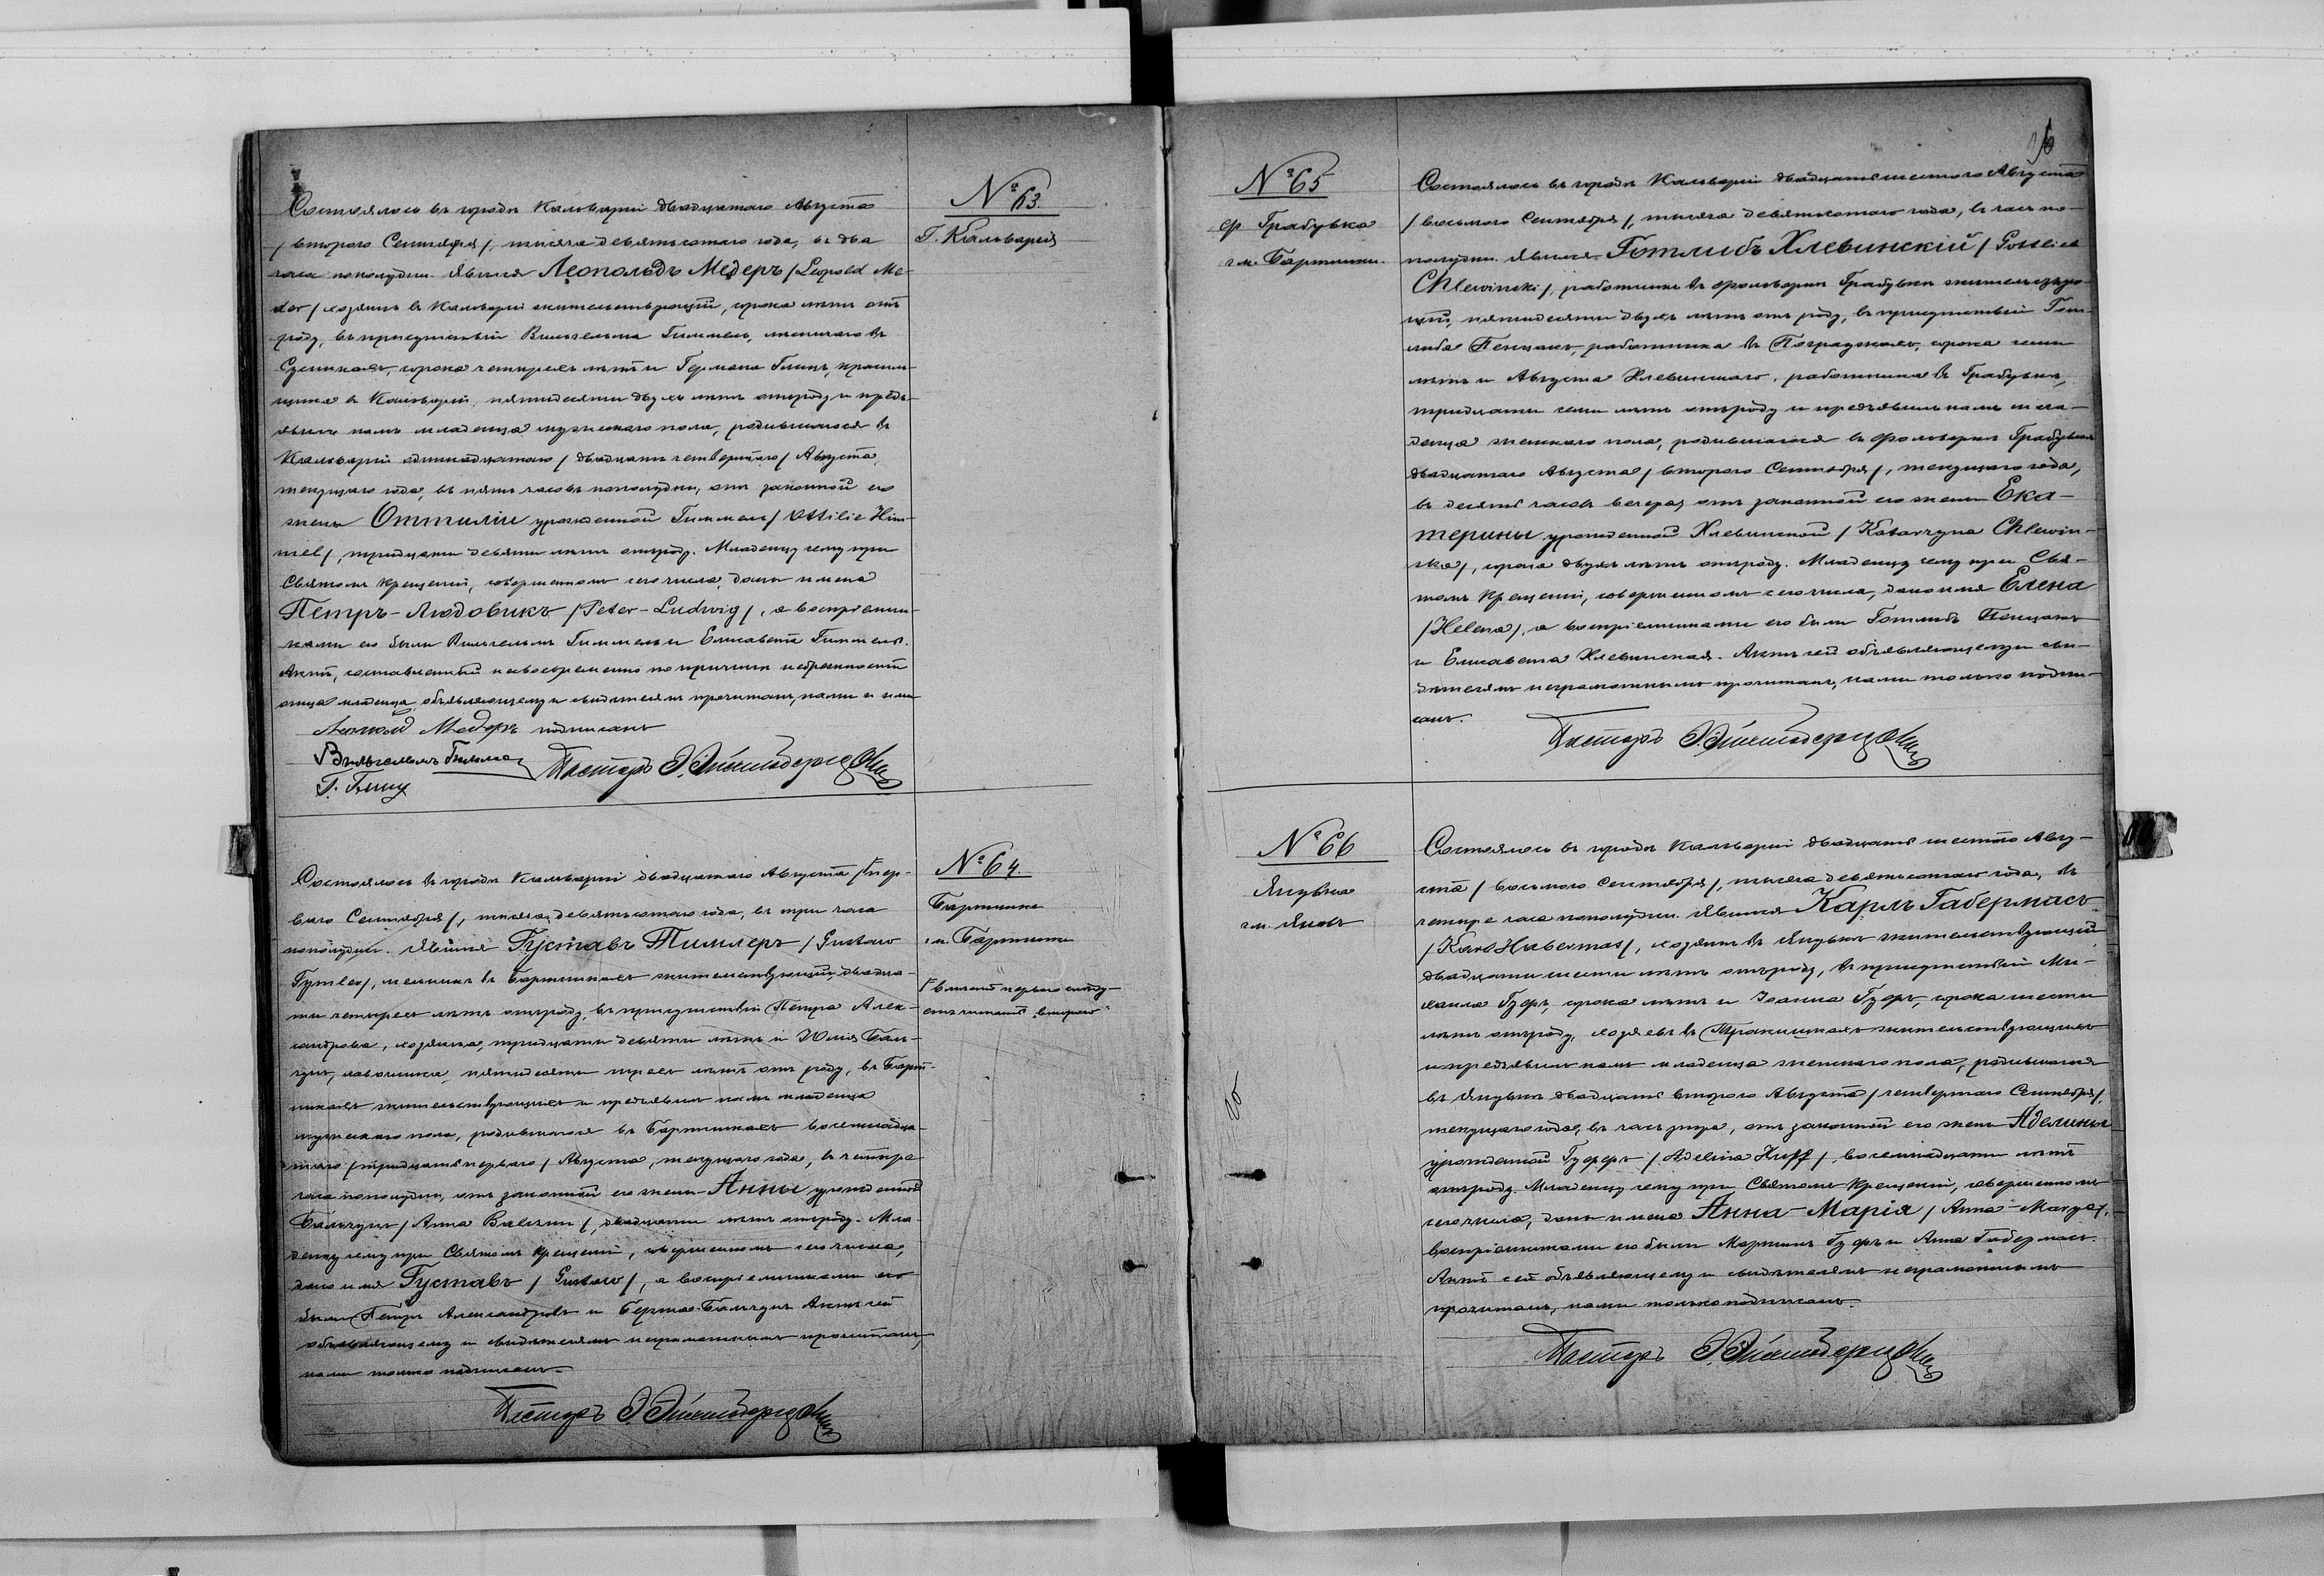 № 63.
Г. Кальварія
Состоялось въ городѣ Кальваріи двадцатаго Августа
/ второго Сентября /, тысяча девятьсотаго года, въ два
часа пополудни. Явился Леопольдъ Медеръ / Leopold Me-
der / хозяинъ въ Кальваріи жительствующій, сорока лѣтъ отъ
роду, въ присутствіи Вильгельма Гиммель, въ
сорока четырехъ лѣтъ и Германа Глинъ,
въ Кальваріи, пятидесяти двухъ лѣтъ отъ роду и предъ-
явилъ намъ младенца мужескаго пола, родившагося въ
Кальваріи одиннадцатаго / двадцать четвертаго / Августа,
текущаго года, въ пять часовъ пополудни, отъ законной его
жены Оттиліи урожденной Гиммель / Ottilie Him-
mel /, тридцати девяти лѣтъ отъ роду. Младенцу сему при
Святомъ Крещеніи, совершенномъ сего числа, даны имена
Петръ-Людовикъ / Peter-Ludwig /, а воспріемни-
ками его были Вильгельмъ Гиммель и Елисавета Гиммель.
Актъ, составленный несвоевременно по причинѣ небрежности
отца младенца, объявляющему и свидѣтелямъ прочитанъ, нами и ими
Леопольд Медеръ подписанъ
Вильгельмъ Гиммель Пасторъ
Г.
№ 64.
Бартники
г.м. Бартники
/ вмѣсто перваго слѣду-
етъ читать „второго"
Состоялось въ городѣ Кальваріи двадцатаго Августа / пер-
ваго Сентября /, тысяча девятьсотаго года, въ три часа
пополудни. Явился Густавъ Тимлеръ / Gustaw
Tymler /, мельникъ въ Бартникахъ жительствующій, двадца-
ти четырехъ лѣтъ отъ роду, въ присутствіи Петра Алек-
сандрова, хозяина, тридцати девяти лѣтъ и Юлія Баль-
чунъ, лавочника, пятидесяти трехъ лѣтъ отъ роду, въ Барт-
никахъ жительствующихъ и предъявилъ намъ младенца
мужескаго пола, родившагося въ Бартникахъ восемнадца-
таго / тридцать перваго / Августа, текущаго года, въ четыре
часа пополудни, отъ законной его жены Анны урожденной
Бальчунъ / Anna Balczun /, двадцати лѣтъ отъ роду. Мла-
денцу сему при Святомъ Крещеніи, совершенномъ сего числа,
дано имя Густавъ / Gustaw /, а воспріемниками его
были Петръ Александровъ и Берта Бальчунъ. Актъ сей
объявляющему и свидѣтелямъ неграмотнымъ прочитанъ,
нами только подписанъ.
Пасторъ
16
№ 65
ф. Грабувка
г.м. Бартники.
Состоялось въ городѣ Кальваріи двадцать шестого Августа
/ восьмого Сентября /, тысяча девятьсотаго года, въ часъ по-
полудни. Явился Готлибъ Хлевинскій / Gottlieb
Chlewinski /, работникъ въ фольваркѣ Грабувкѣ жительствую-
щій, пятидесяти двухъ лѣтъ отъ роду, въ присутствіи Гот-
либа Пенцакъ, работника въ сорока семи
лѣтъ и Августа Хлевинскаго, работника въ Грабувкѣ,
тридцати семи лѣтъ отъ роду и предъявилъ намъ мла-
денца женскаго пола, родившагося въ фольваркѣ Грабувкѣ
двадцатаго Августа / второго Сентября /, текущаго года,
въ десять часовъ вечера, отъ законной его жены Ека-
терины урожденной Хлевинской / Katarzyna Chlewin-
ska /, сорока двухъ лѣтъ отъ роду. Младенцу сему при Свя-
томъ Крещеніи, совершенномъ сего числа, дано имя Елена
/ Helena /, а воспріемниками его были Готлибъ Пенцакъ
и Елисавета Хлевинская. Актъ сей объявляющему и сви-
дѣтелямъ неграмотнымъ прочитанъ, нами только подпи-
санъ.
Пасторъ
№ 66
Янувка
г.м. Яновъ
Состоялось въ городѣ Кальваріи двадцать шестого Авгу-
ста / восьмого Сентября /, тысяча девятьсотаго года, въ
четыре часа пополудни. Явился Карлъ Габермасъ
/ Karl Habermas /, хозяинъ въ Янувкѣ жительствующій
двадцати шести лѣтъ отъ роду, въ присутствіи Ми-
хаила Гуфъ, сорока лѣтъ и Іоанна Гуфъ, сорока шести
лѣтъ отъ роду, хозяевъ въ жительствующихъ
и предъявилъ намъ младенца женскаго пола, родившагося
въ Янувкѣ двадцать второго Августа / четвертаго Сентября /,
текущаго года, въ часъ утра, отъ законной его жены Аделины
урожденной Гуфъ / Adelina Huff /, восемнадцати лѣтъ
отъ роду. Младенцу сему при Святомъ Крещеніи, совершенномъ
сего числа, даны имена Анна-Марія / Anna-Marya /,
воспріемниками его были Мартинъ Гуфъ и Анна Габермасъ.
Актъ сей объявляющему и свидѣтелямъ неграмотнымъ
прочитанъ, нами только подписанъ.
Пасторъ